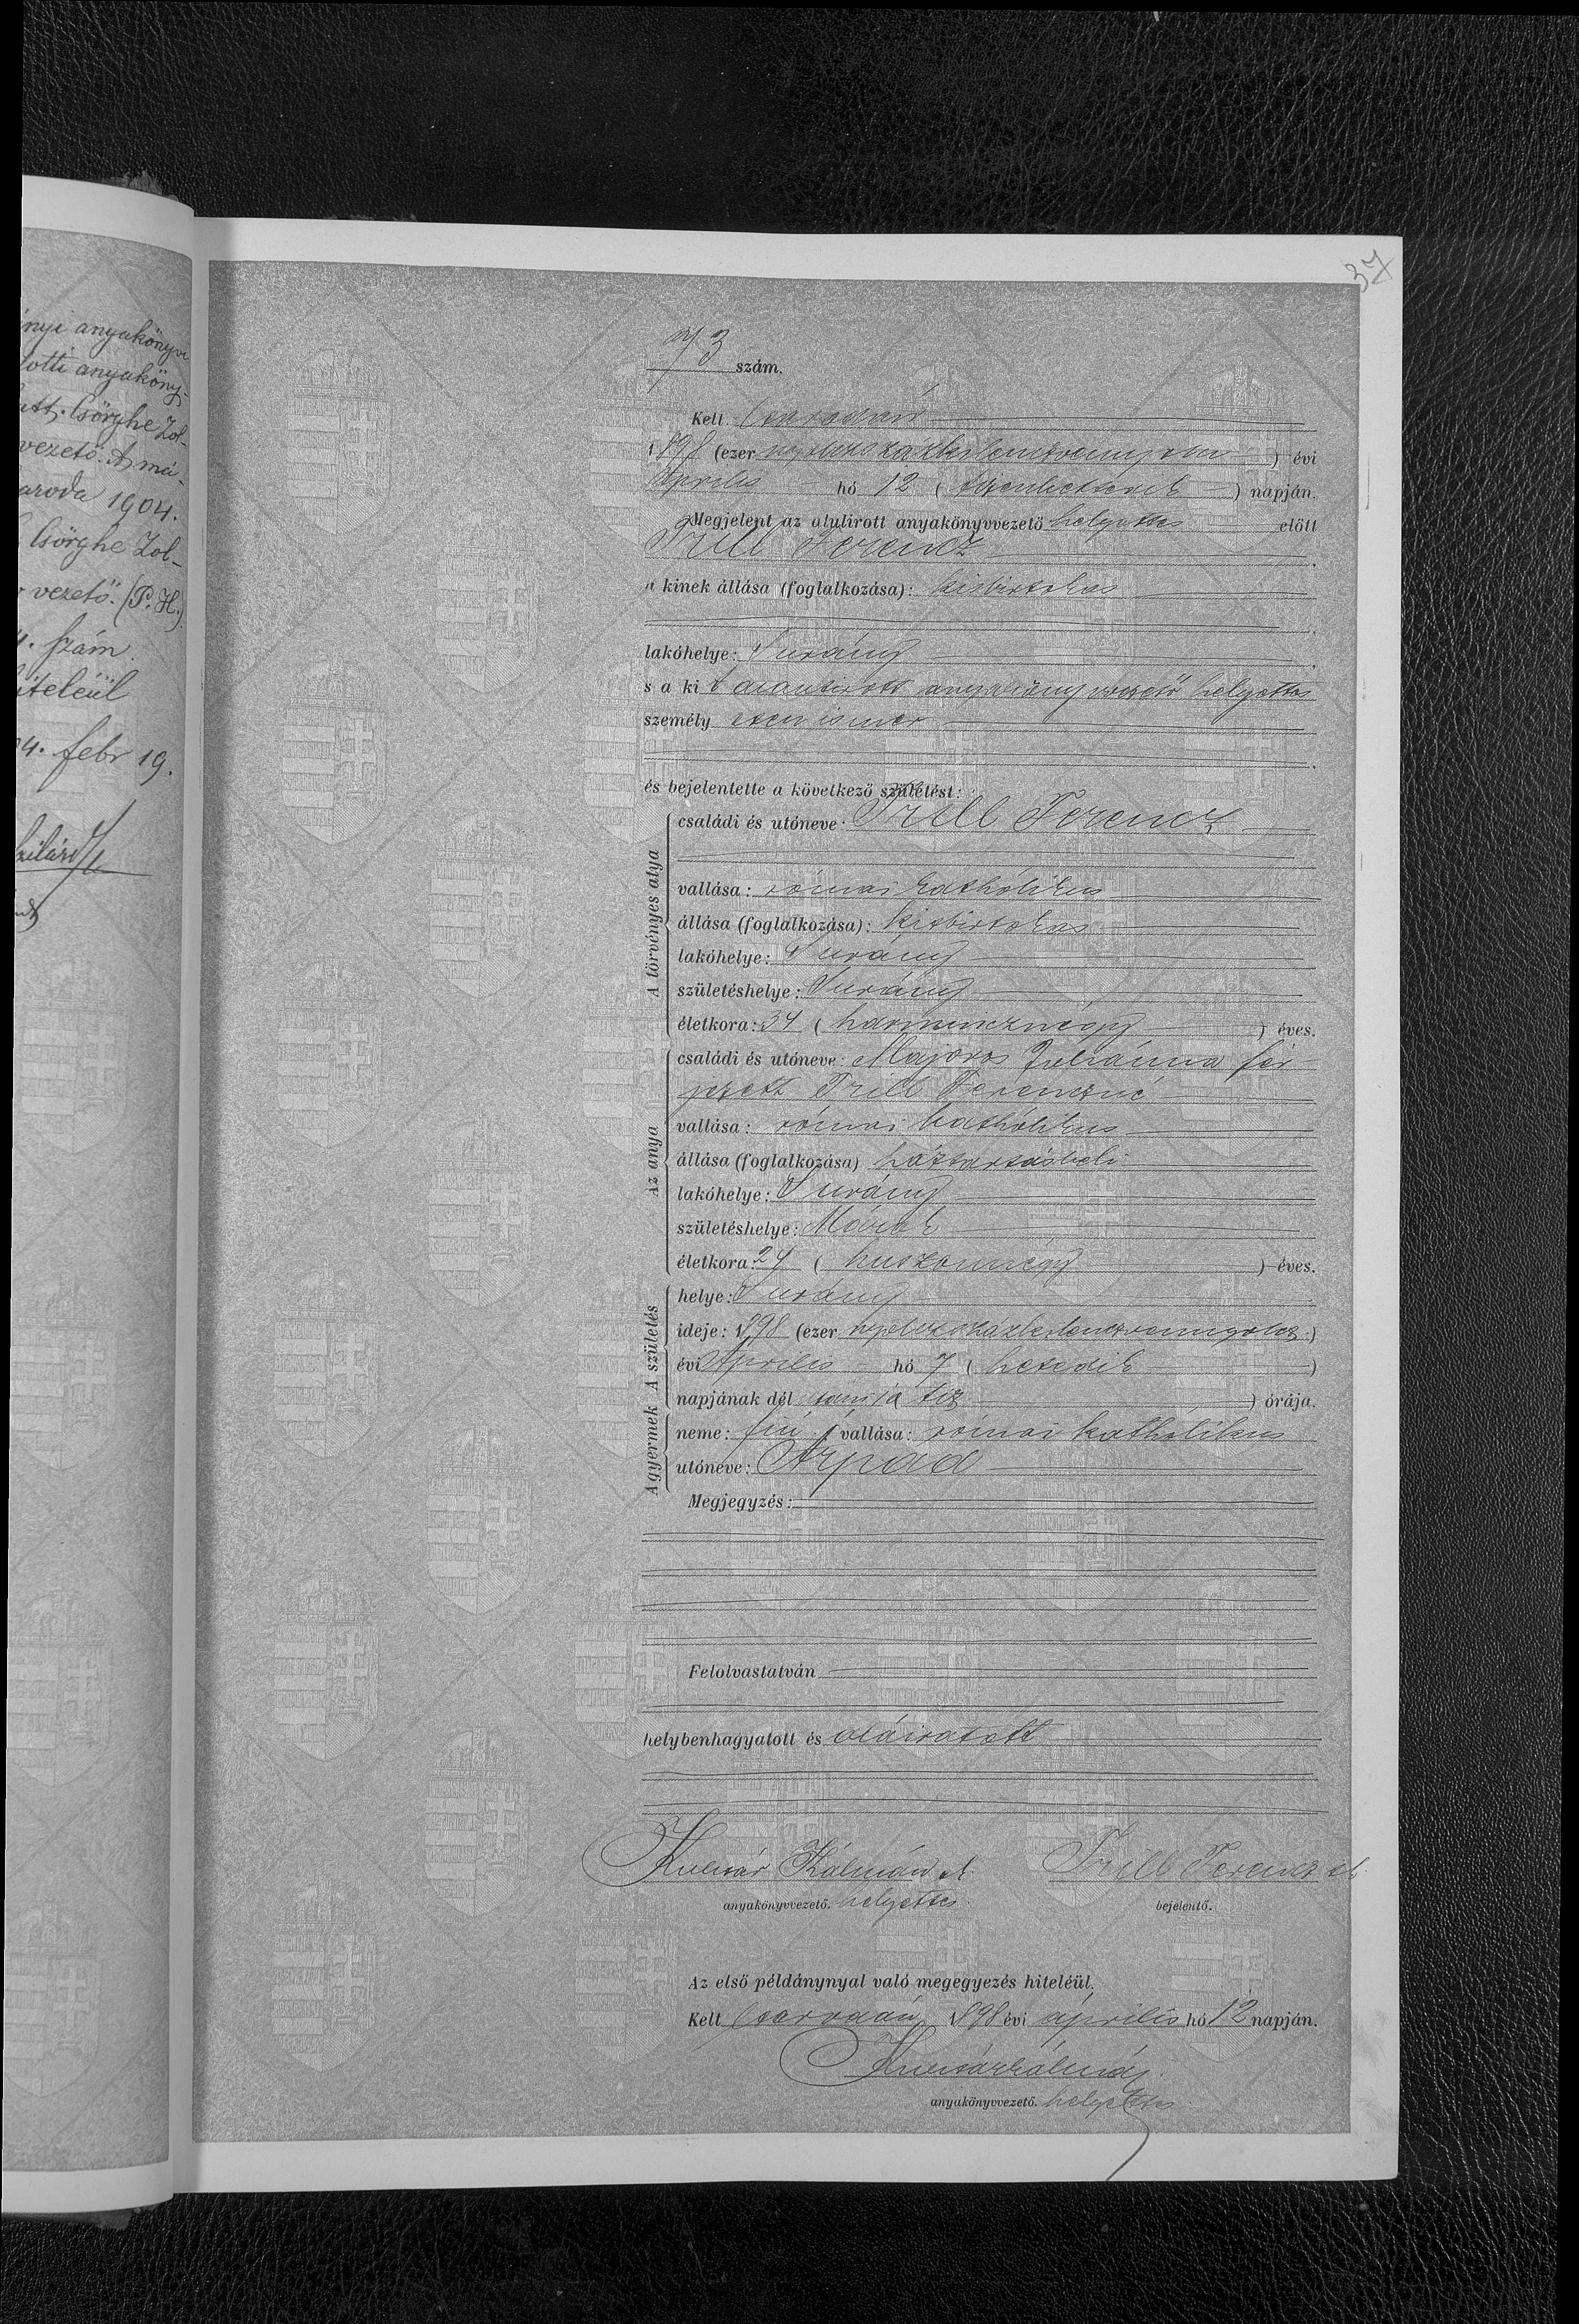 nyi anyakönyv
lotti anyaköny-
att. Csörghe Zol-
vezető. A má-
aroda 1904.
Csörghe Zol-
vezető. (P. H.)
szám.
iteléül
04. febr 19.
37
73 szám.
Kelt
1898 (ezer nyolczszázkilenczvennyolcz) évi
április hó 12 (tizenkettedik) napján.
Megjelent az alulirott anyakönyvvezető helyettes előtt
Trill Ferencz
a kinek állása (foglalkozása): kisbirtokos
lakóhelye: Surány
s a kit alantirott anyakönyvvezető helyettes
személyesen ismer
és bejelentette a következő születést:
A törvényes atya
családi és utóneve: Trill Ferencz
vallása: római katholikus
állása (foglalkozása): kisbirtokos
lakóhelye: Surány
születéshelye: Surány
életkora: 34 (harmincznégy) éves.
Az anya
családi és utóneve: Majoros Juliánna fér-
jezett Trill Ferenczné
vallása: római katholikus
állása (foglalkozása) háztartásbeli
lakóhelye: Surány
születéshelye:
életkora: 24 (huszonnégy) éves.
A születés
helye: Surány
ideje: 1898 (ezer nyolczszázkilenczvennyolcz)
évi április hó 7 (hetedik)
napjának délutánja tiz ) órája.
A gyermek
neme: fiú vallása: római katholikus
utóneve: Árpád
Megjegyzés:
Felolvastatván
helybenhagyatott és aláiratott
Kálmán sk
anyakönyvvezető. helyettes
Trill Ferencz sk
bejelentő.
Az első példánynyal való megegyezés hiteléül.
Kelt 1898 évi április hó 12 napján.
anyakönyvvezető. helyettes